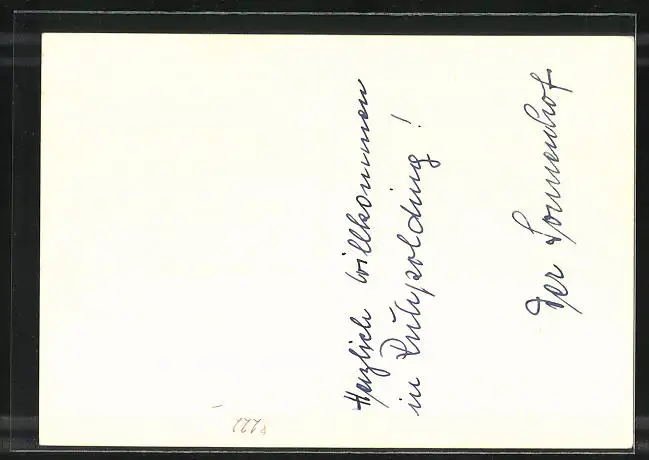 Herzlich Willkommen
in Ruhpolding!
Der Sonnenhof